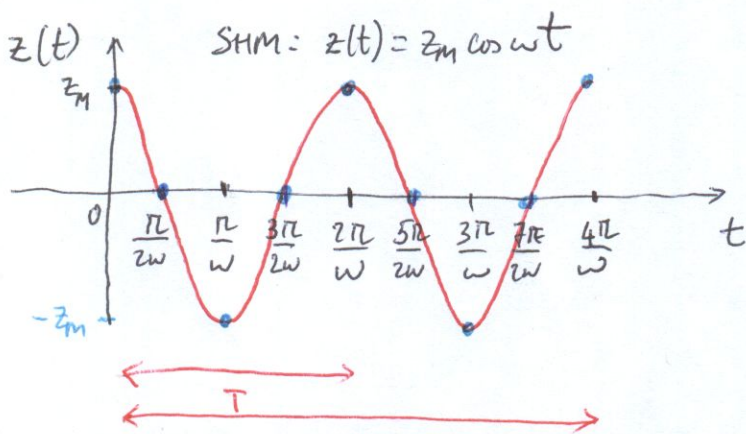 z(t) SHM: z(t) = z_M cos ωt
z_M
0 π/2ω π/ω 3π/2ω 2π/ω 5π/2ω 3π/ω 7π/2ω 4π/ω t
-z_M
T